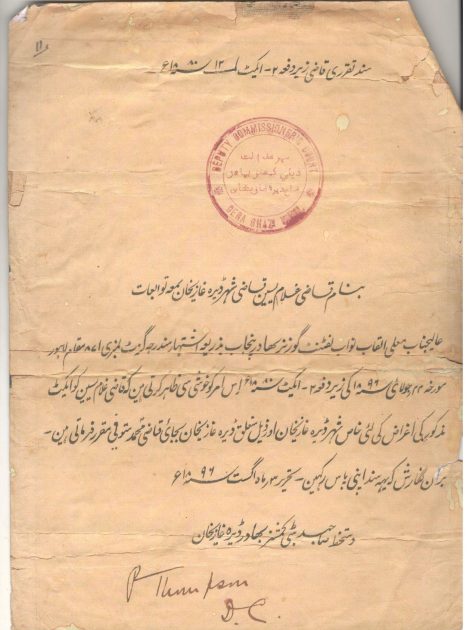 سند تقرری قاضی زیر دفعہ ۲ - ایکٹ ۱۲ سنہ ۱۸۸۰ء
DEPUTY COMMISSIONER'S COURT
مہر عدالت
ڈپٹی کمشنر بہادر
DERA GHAZI KHAN
بنام قاضی غلام یسین قاضی شہر ڈیرہ غازیخان بمعہ توابعات
عالیجناب معلی القاب نواب لفٹنٹ گورنر بہادر پنجاب بذریعہ اشتہار مندرجہ گزٹ نمبری ۸۷۱ مقام لاہور
مورخہ جولائی سنہ ۱۸۹۶ کی زیر دفعہ ۲ - ایکٹ سنہ ۱۸۸۰ء اس امر کو خوشی سی ظاہر کرتی ہین کہ قاضی غلام یسین کو ایکٹ
مذکور کی اغراض کی لئی خاص شہر ڈیرہ غازیخان اور ذیل متعلق ڈیرہ غازیخان بجائی قاضی محمد متوفی مقرر فرماتی ہین -
بران نگارش کہ یہہ سند اپنی پاس رکہین - تحریر ماہ اگست سنہ ۹۶ ۱۸ء
دستخط صاحب ڈپٹی کمشنر بہادر ڈیرہ غازیخان
P Thompson
D.C.